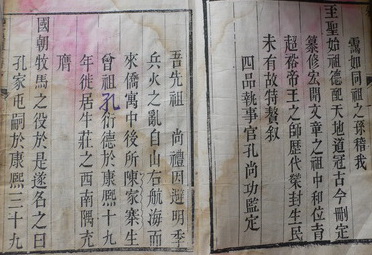 靄如同祖之孫稽我
王聖始祖德配天地道冠古今刪定
纂修宏開文章之祖中和位育
超裕帝王之師歷代榮封生民
未有故特贅敘
四品執事官孔尚功鑑定
吾先祖 尚禮因避明季
兵火之亂自山右航海而
來僑寓中後所陳家寨生
曾祖孔衍德於康熙十九
年徙居牛莊之西南隅充
膺
國朝牧馬之役於是遂名之曰
孔家屯嗣於康熙三十九